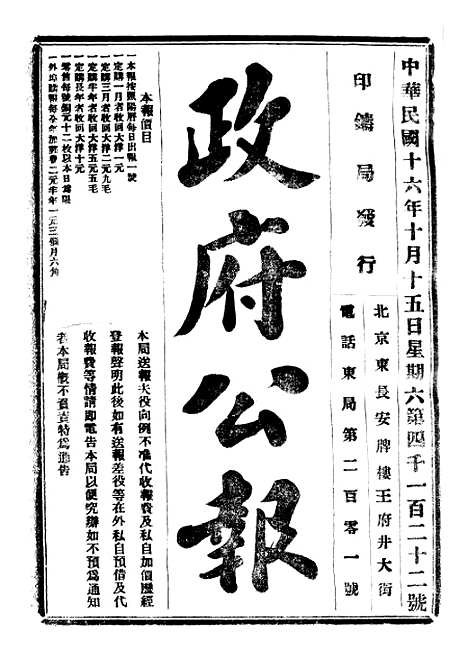 中華民國十六年十月十五日星期六第四千一百二十二號
印鑄局發行
北京東長安牌樓王府井大街
電話東局第二百零一號
政府公報
本報價目
一本報按照陽曆每日出報一號
一定購一月者收回大洋一元
一定購三月者收回大洋二元九毛
一定購半年者收回大洋五元五毛
一定購長年者收回大洋十元
一零售每號銅元十二枚以本日為限
一外埠購報每分全年加郵費二元半年一元三個月六角
本局送報夫役向例不准代收報費及私自加價歷經
登報聲明此後如有送報差役等在外私自預借及代
收報費等情請即電告本局以便究辦如不預為通知
者本局概不負責特為通告